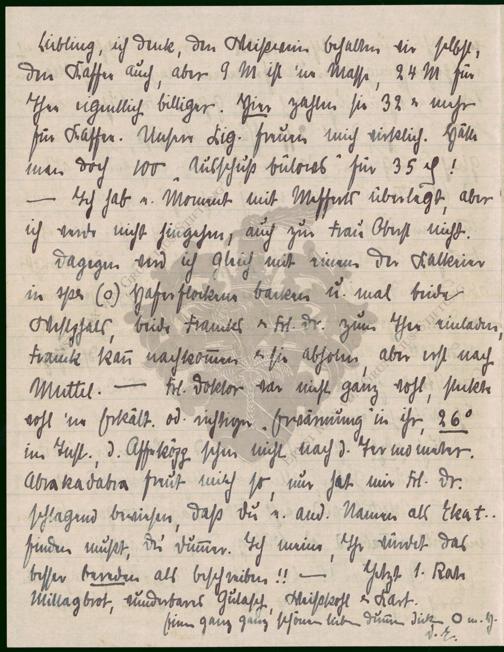 Liebling, ich denk, den Weißwein behalten wir selbst,
den Kaffee auch, aber 9 M ist 'ne Masse, 24 M für
Thee eigentlich billiger. Hier zahlen sie 32 u mehr
für Kaffee. Unsere Zig. freuen mich wirklich. Hätte
man doch 100 "Ausschuß bülows" für 35 !
— Ich hab e. Moment mit überlegt, aber
ich werde nicht hingehen, auch zur Frau Oberst nicht.
Dagegen werd ich gleich mit einem der
in (o) Haferflocken backen u. mal beide
Westphals, beide Francks u Frl. Dr. zum Thee einladen,
Franck kann nachkommen u sie abholen, aber erst nach
Muttel. — Frl. Doktor war nicht ganz wohl, steckte
wohl 'ne Erkält. od. richtiger "Erwärmung" in ihr, 26°
im Inst., d. sehen nicht nach d. Termometer.
Abrakadabra freut mich so, nur hat mir Frl. Dr.
schlagend bewiesen, daß du e. and. Namen als Ekat..
finden mußt, du dummer. Ich meine, Ihr würdet das
besser bereden als beschreiben!! — Jetzt 1. Rate
Mittagbrot, wunderbares Gulasch, Weißkohl u Kart.
Einen ganz ganz schönen lieben dummen dicken O m. H.
D. E.